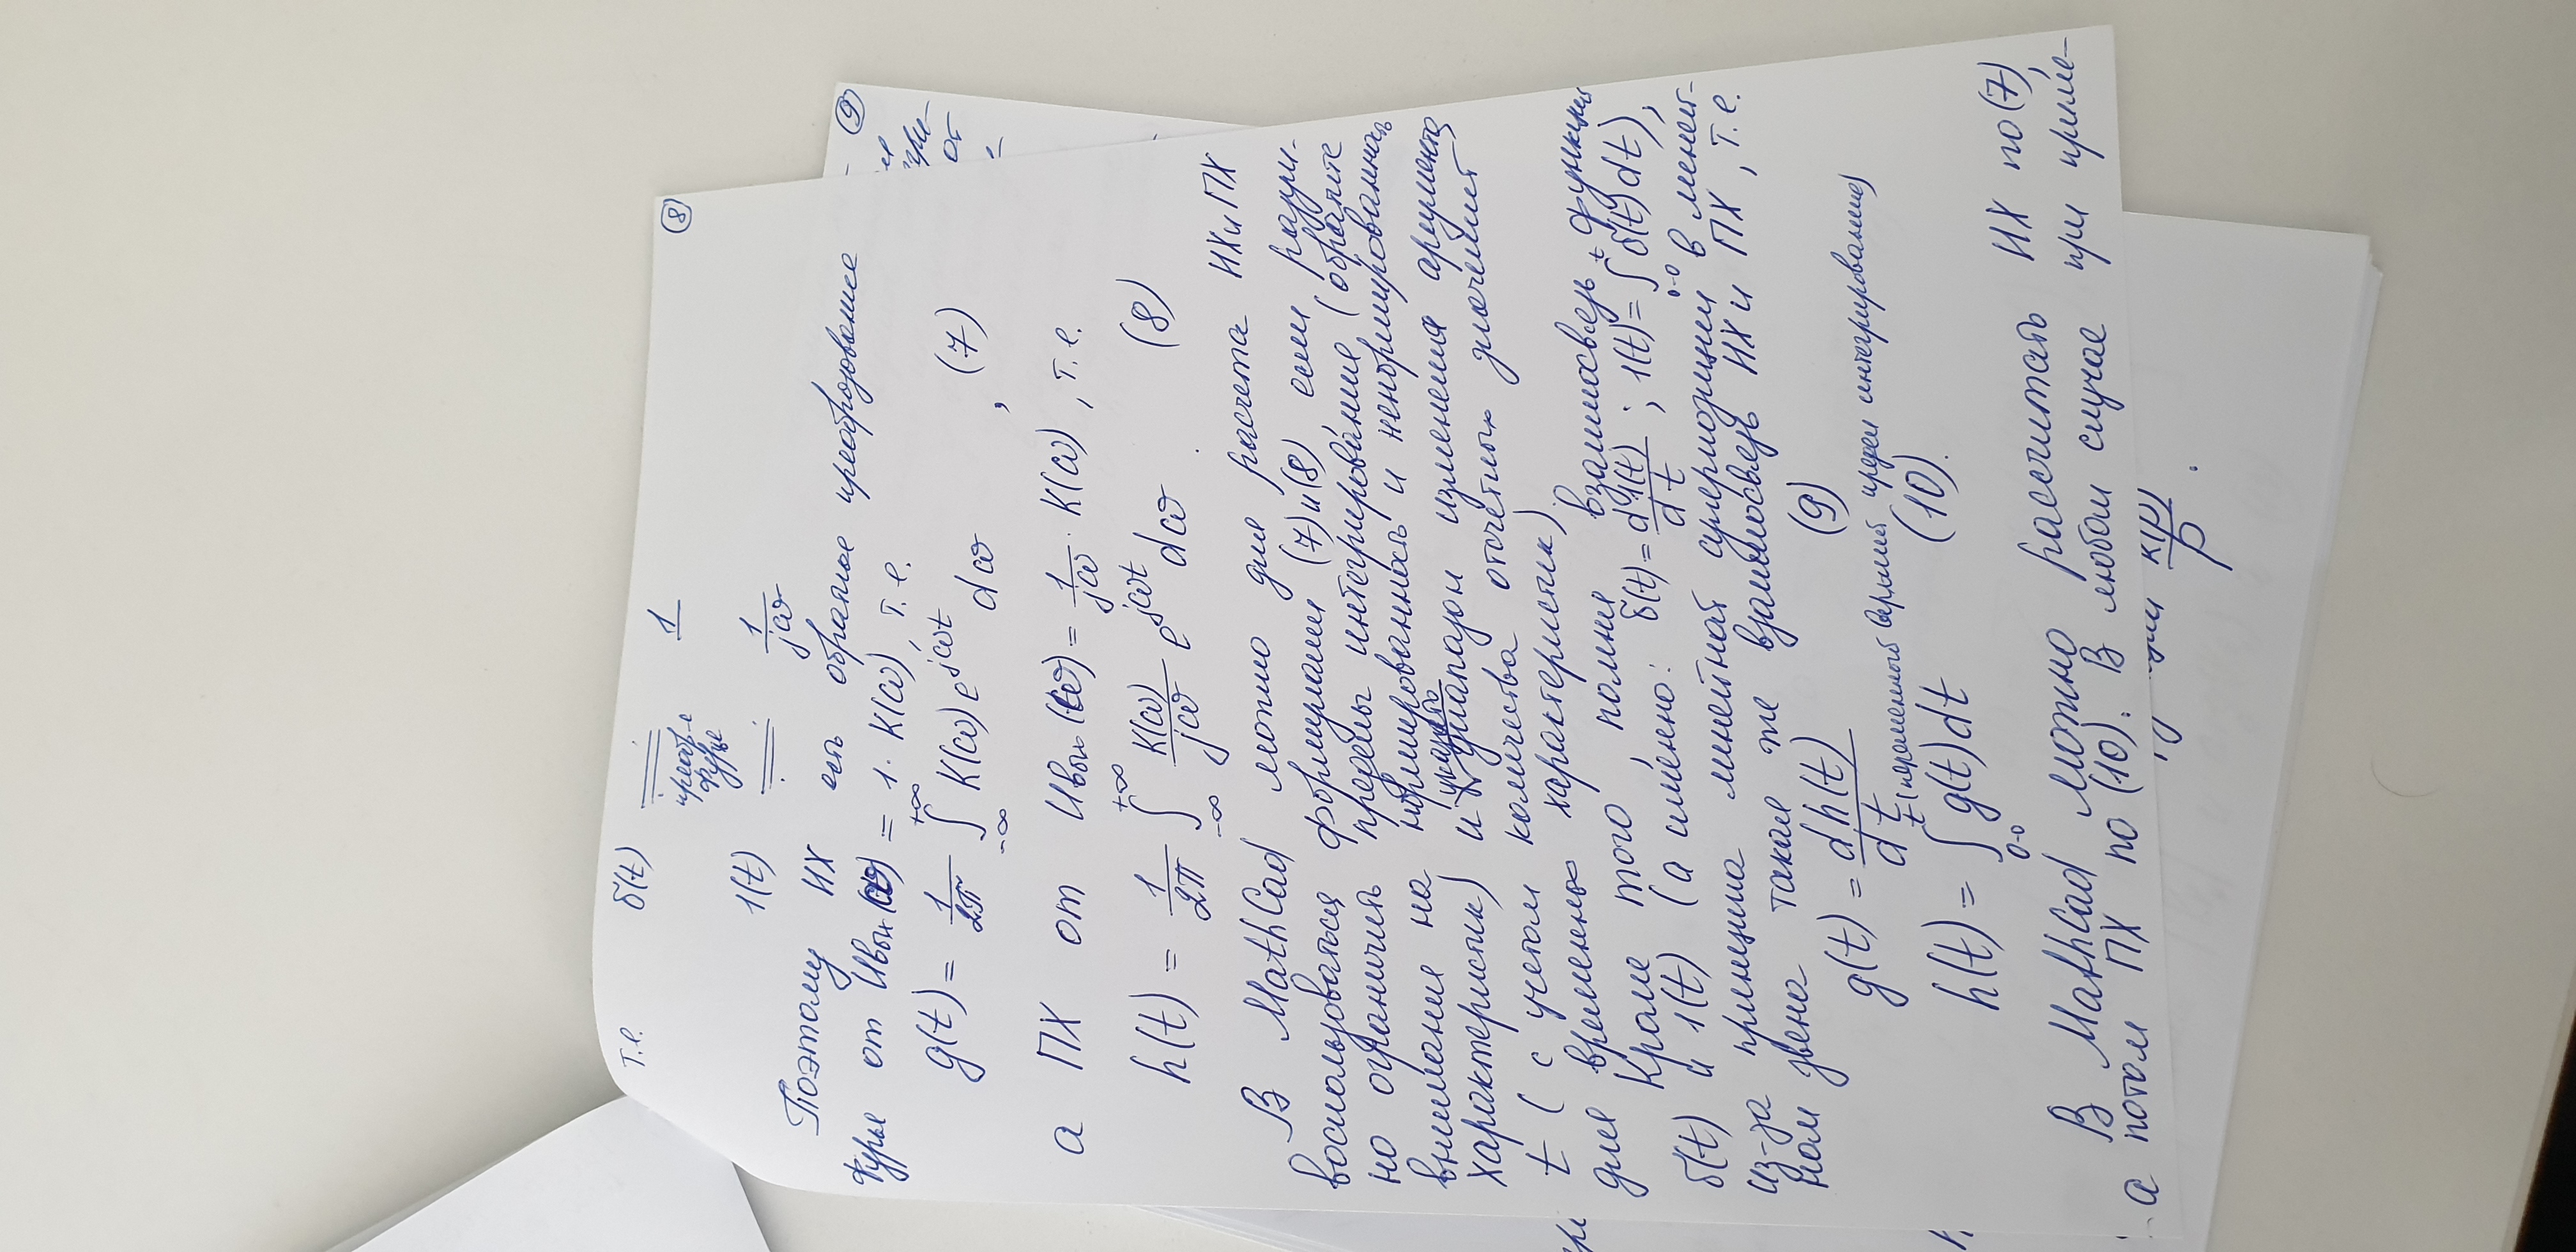 т.е. δ(t) ≓ 1
преобр-е
Фурье
⑧
1(t) ≓ 1/jω
Поэтому ИХ есть обратное преобразование
Фурье от Uвых(ω) = 1· K(ω), т.е.
g(t) = 1/2π ∫_{-∞}^{+∞} K(ω) e^{jωt} dω , (7)
а ПХ от Uвых(ω) = 1/jω · K(ω), т.е.
h(t) = 1/2π ∫_{-∞}^{+∞} K(ω)/jω e^{jωt} dω . (8)
В MathCad можно для расчета ИХ и ПХ
воспользоваться формулами (7) и (8), если разум-
но ограничить пределы интегрирования (обратите
внимание на нормированность и ненормированность
характеристик) и указать диапазон изменения аргумента
t (с учетом количества отсчетных значений
для временных характеристик).
Кроме того, помня взаимосвязь функций
δ(t) и 1(t) (а именно: δ(t) = d1(t)/dt ; 1(t) = ∫_{0-0}^{t} δ(t)dt),
из-за принципа линейной суперпозиции в линей-
ном звене такая же взаимосвязь ИХ и ПХ, т.е.
g(t) = dh(t)/dt (9)
t (переменный верхний предел интегрирования)
h(t) = ∫_{0-0} g(t)dt (10).
В MathCad можно рассчитать ИХ по (7),
а потом ПХ по (10). В любом случае при приме-
K(p)/p .
⑨
от